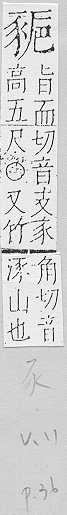 豟
旨而切音支豕
高五尺又竹
角切音
涿山也
豕
V.11
p.36